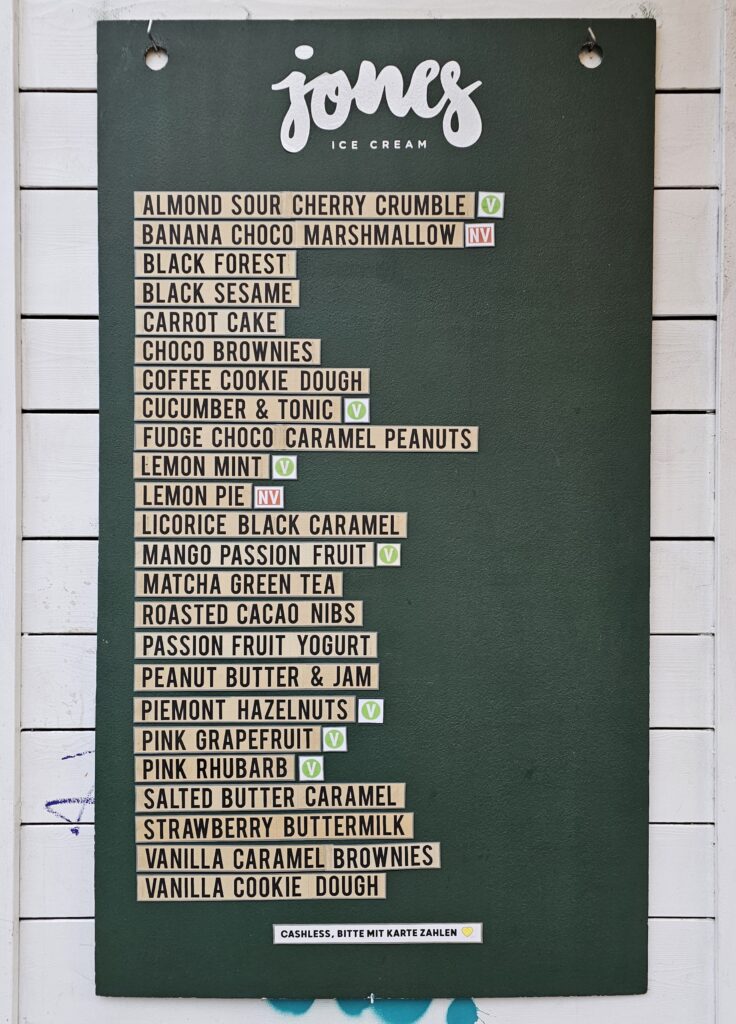 jones
ICE CREAM
ALMOND SOUR CHERRY CRUMBLE V
BANANA CHOCO MARSHMALLOW NV
BLACK FOREST
BLACK SESAME
CARROT CAKE
CHOCO BROWNIES
COFFEE COOKIE DOUGH
CUCUMBER & TONIC V
FUDGE CHOCO CARAMEL PEANUTS
LEMON MINT V
LEMON PIE NV
LICORICE BLACK CARAMEL
MANGO PASSION FRUIT V
MATCHA GREEN TEA
ROASTED CACAO NIBS
PASSION FRUIT YOGURT
PEANUT BUTTER & JAM
PIEMONT HAZELNUTS V
PINK GRAPEFRUIT V
PINK RHUBARB V
SALTED BUTTER CARAMEL
STRAWBERRY BUTTERMILK
VANILLA CARAMEL BROWNIES
VANILLA COOKIE DOUGH
CASHLESS, BITTE MIT KARTE ZAHLEN 💛